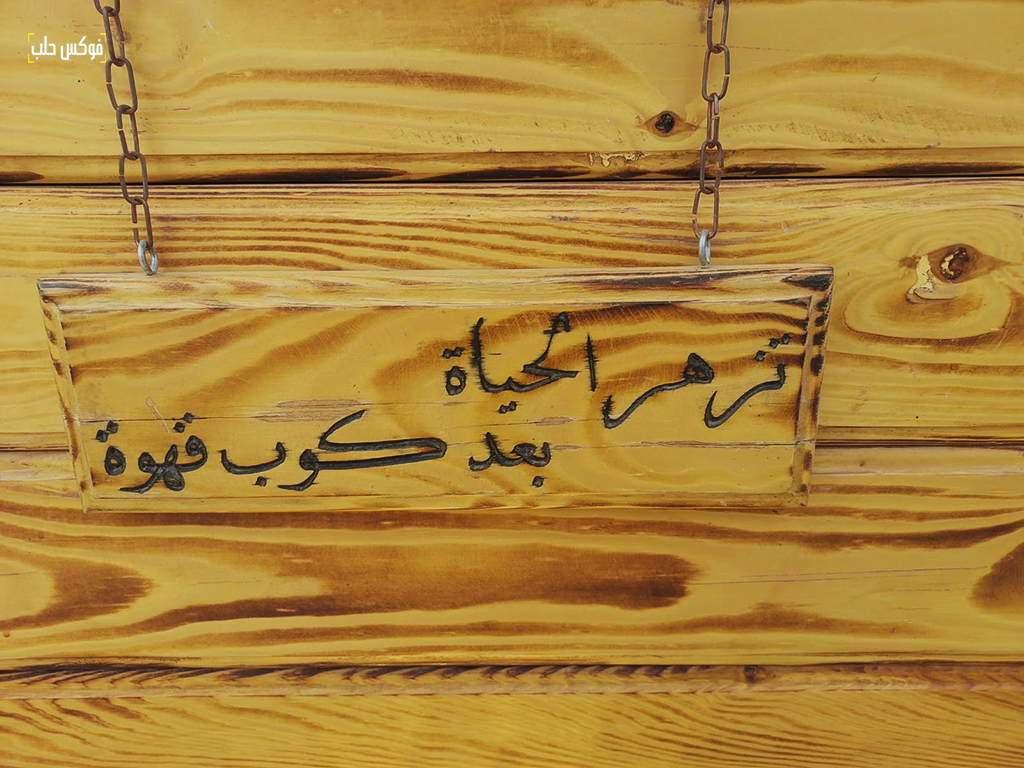 فوكس حلب
تزهر الحياة
بعد كوب قهوة